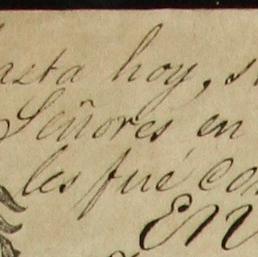 hasta hoy, s
Señores en
les fué con
EN